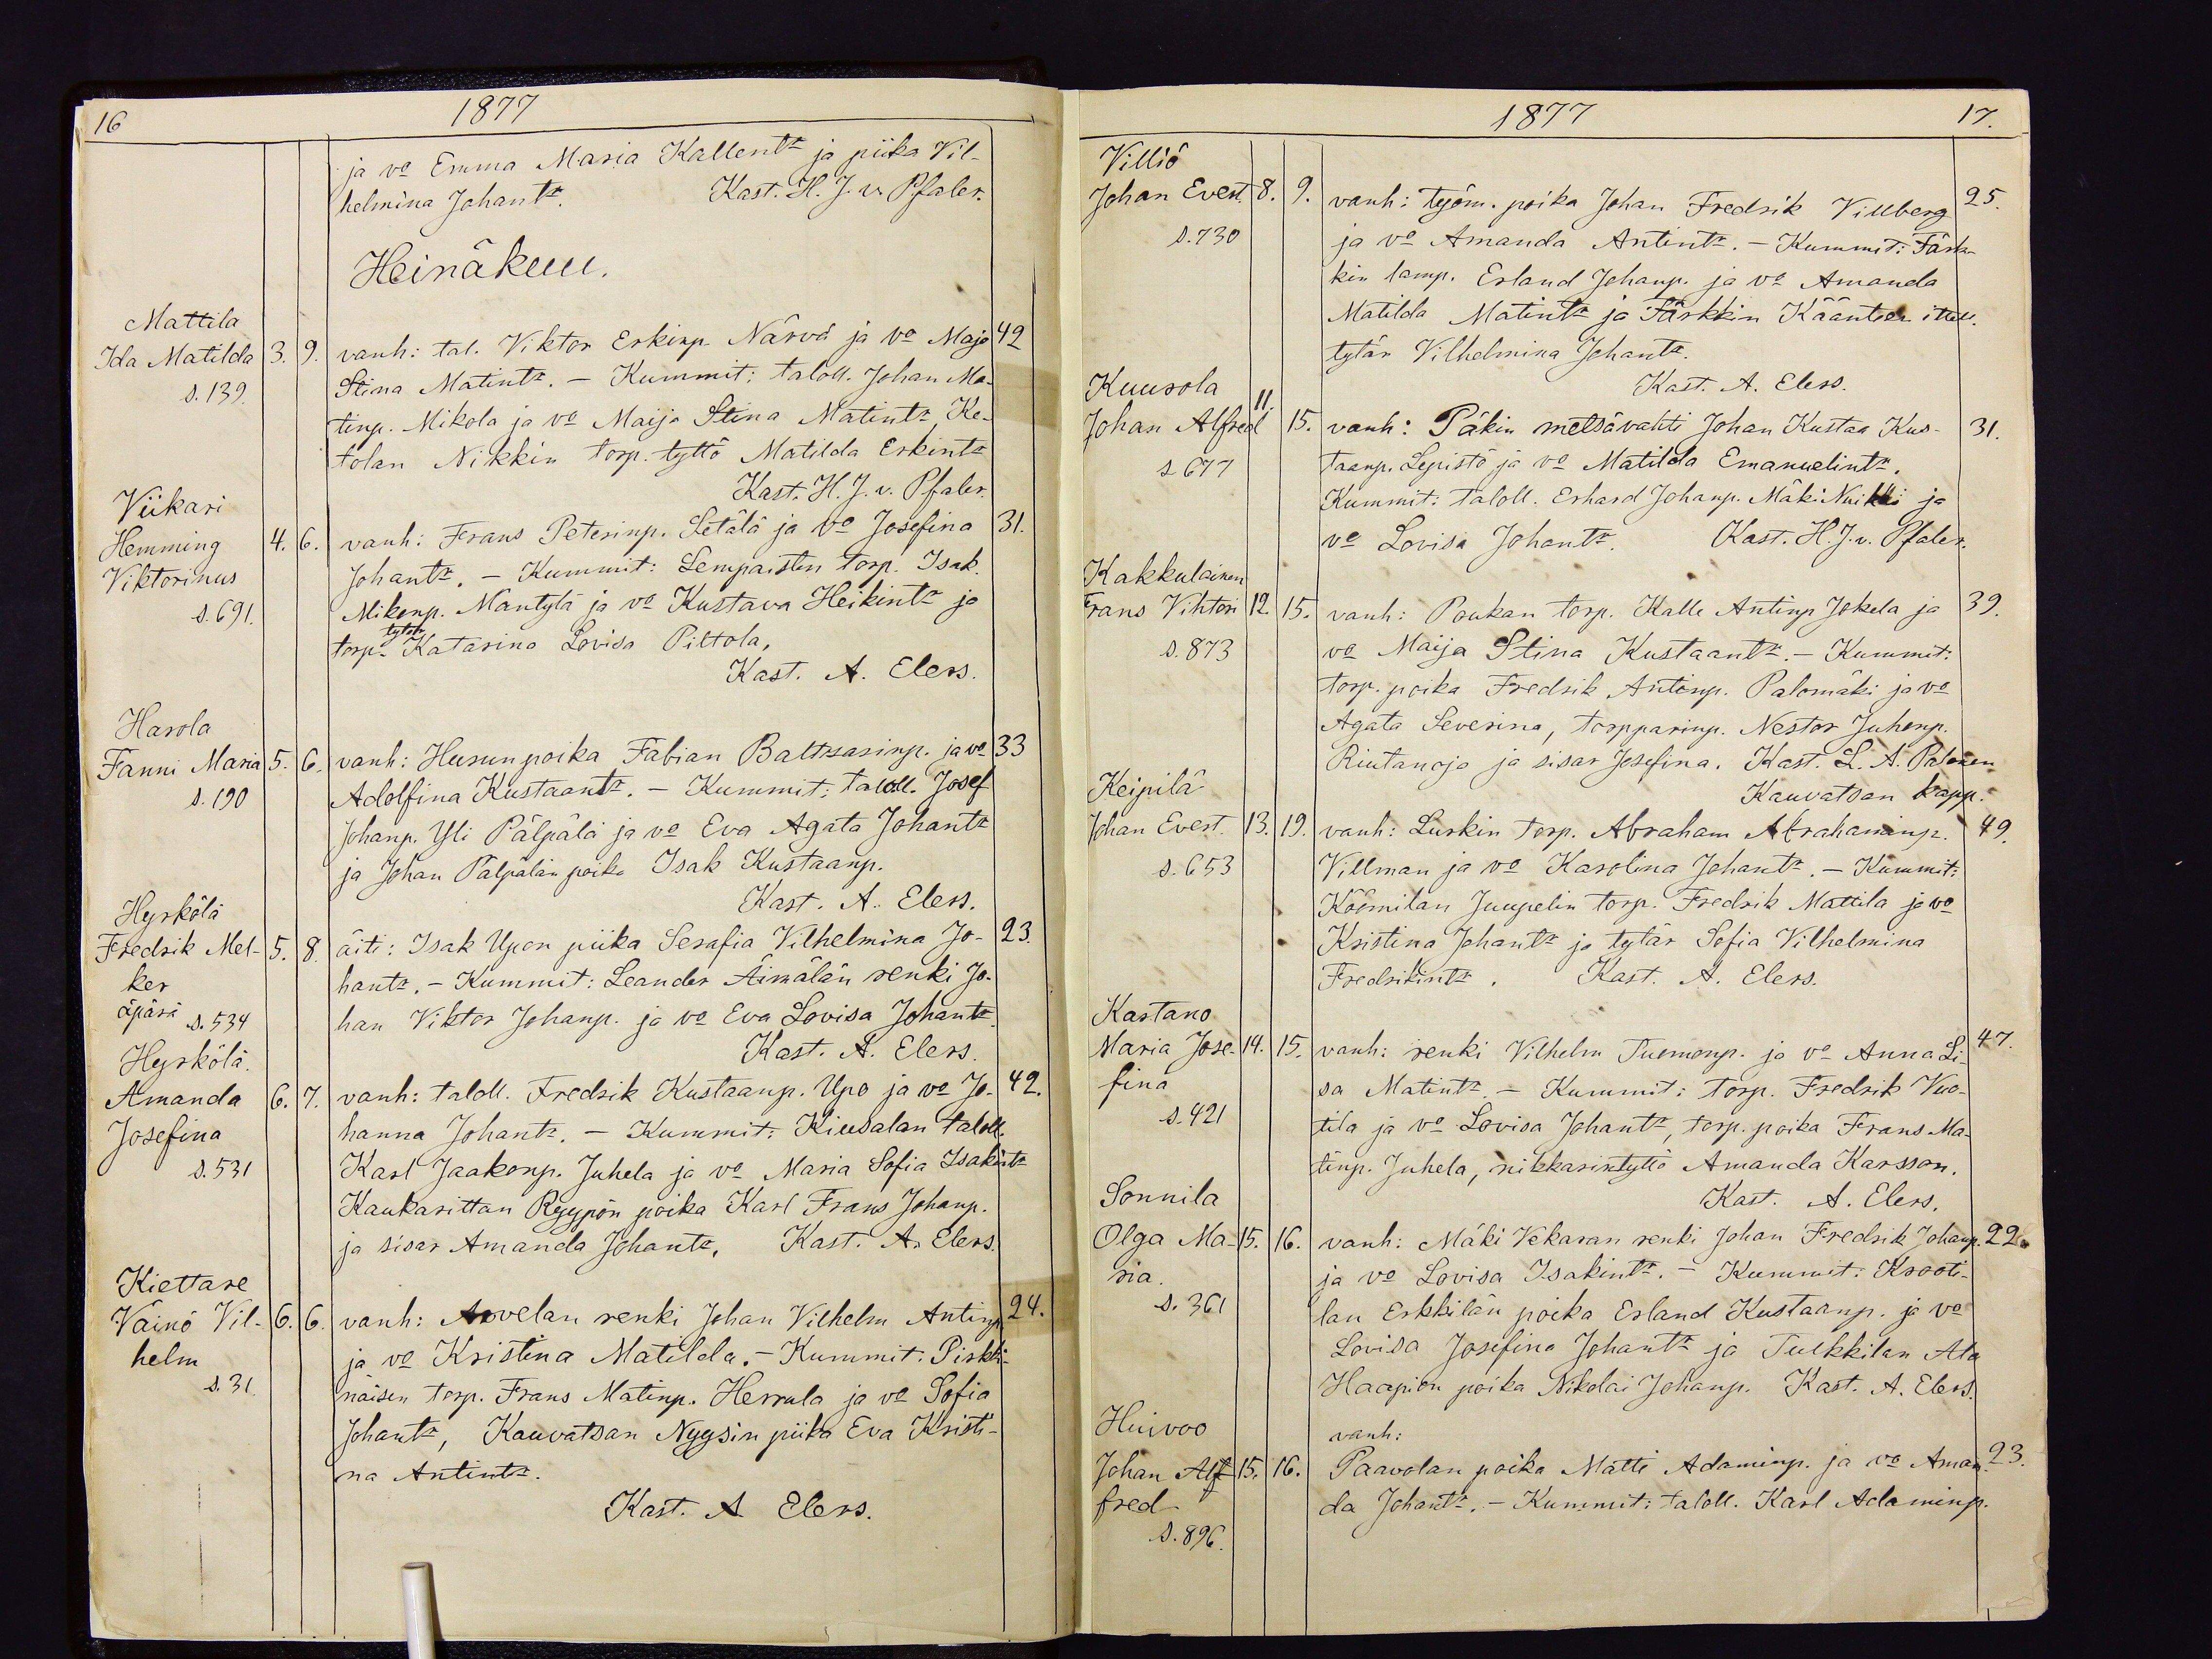 16
1877
ja vo Emma Maria Kallentr ja piika Vil-
helmina Johantr. Kast. H. J. v. Pfaler.
Heinäkuu.
Mattila
Ida Matilda 3. 9. vanh: tal. Viktor Erkinp. Närvä ja vo Maja 42
s. 139. Stina Matintr. — Kummit: taloll. Johan Ma-
tinp. Mikola ja vo Maija Stina Matintr, Ke-
tolan Nikkin torp. tyttö Matilda Erkintr
Kast. H. J. v. Pfaler.
Viikari
Hemming 4. 6. vanh: Frans Peterinp. Setälä ja vo Josefina 31.
Viktorinus Johantr. — Kummit: Lempäisten torp. Isak
s. 691. Mikonp. Mäntylä ja vo Kustava Heikintr ja
torp. tytär Katarina Lovisa Piltola.
Kast. A. Elers.
Harola
Fanni Maria 5. 6. vanh: Husun poika Fabian Baltsasarinp. ja vo 33
s. 190 Adolfina Kustaantr. — Kummit: taloll. Josef
Johanp. Yli Pälpälä ja vo Eva Agata Johantr
ja Johan Pälpälän poika Isak Kustaanp.
Kast. A. Elers.
Hyrkölä
Fredrik Mel- 5. 8. äiti: Isak Upon piika Serafia Vilhelmina Jo- 23.
ker hantr. — Kummit: Leander Äimälän renki Jo-
äpärä s. 534 han Viktor Johanp. ja vo Eva Lovisa Johantr.
Kast. A. Elers.
Hyrkölä.
Amanda 6. 7. vanh: taloll. Fredrik Kustaanp. Upo ja vo Jo- 42.
Josefina hanna Johantr. — Kummit: Kiusalan taloll.
s. 531 Karl Jaakonp. Juhela ja vo Maria Sofia Isakintr
Kaukarittan Ryypön poika Karl Frans Johanp.
ja sisar Amanda Johantr. Kast. A. Elers.
Kiettare
Väinö Vil- 6. 6. vanh: Arvelan renki Johan Vilhelm Antinp. 24.
helm ja vo Kristina Matilda. — Kummit: Pirkki-
s. 31. näisen torp. Frans Matinp. Herrala ja vo Sofia
Johantr, Kauvatsan Nyysin piika Eva Kristi-
na Antintr.
Kast. A. Elers.
1877
17.
Villiö
Johan Evert. 8. 9. vanh: työm. poika Johan Fredrik Villberg 25.
s. 730 ja vo Amanda Antintr. — Kummit: Färk-
kin lamp. Erland Johanp. ja vo Amanda
Matilda Matintr ja Färkkin Kääntsen itsell.
tytär Vilhelmina Johantr.
Kast. A. Elers.
Kuurola
Johan Alfred 11. 15. vanh: Päkin metsävahti Johan Kustaa Kus- 31.
s. 677 taanp. Lepistö ja vo Matilda Emanuelintr.
Kummit: taloll. Erhard Johanp. Mäki Nuikki ja
vo Lovisa Johantr. Kast. H. J. v. Pfaler.
Kakkulainen
Frans Vihtori 12. 15. vanh: Poukan torp. Kalle Antinp Jokela ja 39.
s. 873 vo Maija Stina Kustaantr. — Kummit:
torp. poika Fredrik Antinp. Palomäki ja vo
Agata Severina, torpparinp. Nestor Juhonp.
Riutanoja ja sisar Josefina. Kast. L. A. Palonen
Kauvatsan kapp.
Keipilä
Johan Evert. 13. 19. vanh: Luskin torp. Abraham Abrahaminp. 49.
s. 653 Villman ja vo Karolina Johantr. — Kummit:
Köömilän Juupelin torp. Fredrik Mattila ja vo
Kristina Johantr ja tytär Sofia Vilhelmina
Fredrikintr. Kast. A. Elers.
Kastano
Maria Jose- 14. 15. vanh: renki Vilhelm Tuomonp. ja vo Anna Li- 47.
fina sa Matintr. — Kummit: torp. Fredrik Vuo-
s. 421 tila ja vo Lovisa Johantr, torp. poika Frans Ma-
tinp. Juhela, nikkarintyttö Amanda Karsson.
Kast. A. Elers.
Sonnila
Olga Ma- 15. 16. vanh: Mäki Vekaran renki Johan Fredrik Johanp. 22.
ria. ja vo Lovisa Isakintr. — Kummit: Krooti-
s. 361 lan Erkkilän poika Erland Kustaanp. ja vo
Lovisa Josefina Johantr ja Tulkkilan Ala
Haapion poika Nikolai Johanp. Kast. A. Elers.
Huivoo vanh:
Johan Alf- 15. 16. Paavolan poika Matti Adaminp. ja vo Aman- 23.
fred da Johantr. — Kummit: taloll. Karl Adaminp.
s. 896.